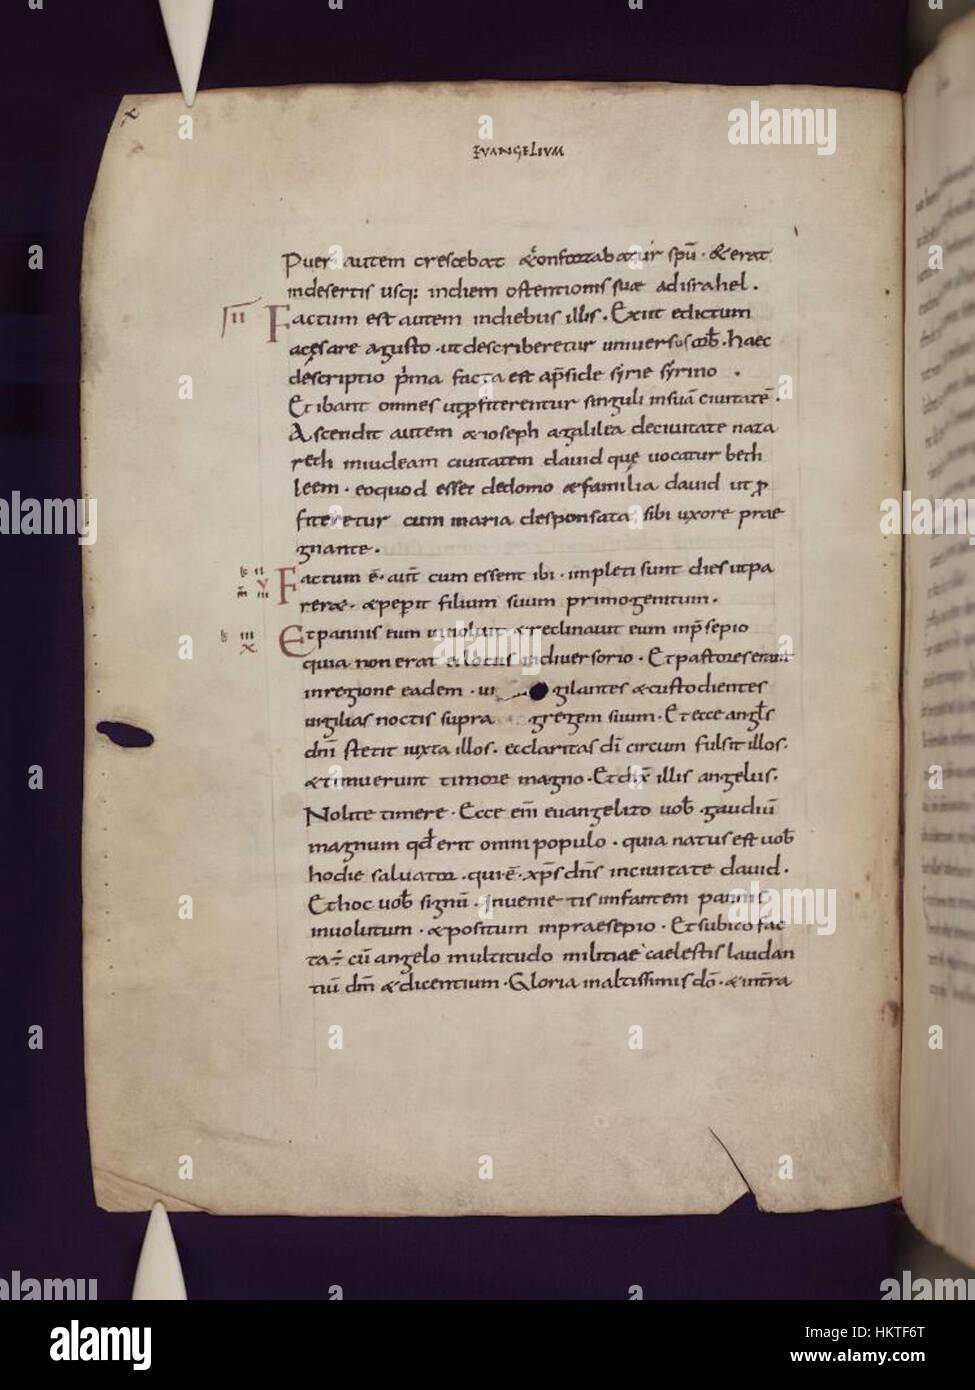 EVANGELIUM
Puer autem crescebat &confortabatur spū · &erat
indesertis usq; indiem ostentionis suae adisrahel .
III Factum est autem indiebus illis . Exiit edictum
acęsare agusto · utdescriberetur universus orb̄ · haec
déscriptio p̄ma facta est ap̄side syrie syrino .
Et ibant omnes utꝓfiterentur singuli insuā civitatē .
Ascendit autem &ioseph agalilea decivitate naza
reth iniudeam civitatem david quę vocatur beth
leem · eoquod esset dedomo &familia david ut ꝓ
fiteretur cum maria desponsata sibi uxore prae
gnante .
Factum ē · aut̄ cum essent ibi · impleti sunt dies utpa
rer& · &peperit filium suum primogenitum .
Etpannis eum involvit &reclinavit eum inp̄sepio
quia non erat ei locus indiversorio . Etpastores erant
inregione eadem · vi gilantes &custodientes
vigilias noctis supra gregem suum . Et ecce angl̄s
dn̄i stetit iuxta illos . etclaritas dī circum fulsit illos .
&timuerunt timore magno . Et dix̄ illis angelus .
Nolite timere . Ecce eni̅ evangelizo vob̄ · gaudiū
magnum qđ erit omni populo . quia natus est vob̄
hodie salvator . qui ē · xp̄s dn̄s incivitate david .
Et hoc vob̄ signū . invenietis infantem pannis
involutum . &positum inpraesepio . Et subito fac
ta ÷ cū angelo multitudo militiae caelestis laudan
tiū dm̄ &dicentium . Gloria inaltissimis dō . &int̄ra
alamy
alamy
alamy
alamy
alamy
alamy
alamy
Image ID: HKTF6T
www.alamy.com